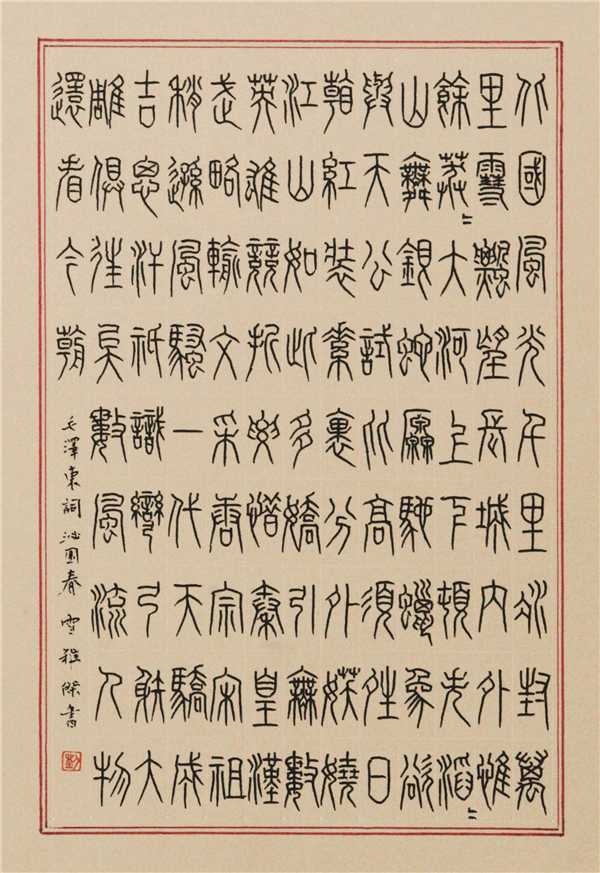 北國風光千里冰封萬
里雪飄望長城內外惟
餘莽〻大河上下頓失滔〻
山舞銀蛇原馳蠟象欲
與天公試比高須晴日
看紅裝素裹分外妖嬈
江山如此多嬌引無數
英雄競折腰惜秦皇漢
武略輸文采唐宗宋祖
稍遜風騷一代天驕成
吉思汗祇識彎弓射大
雕俱往矣數風流人物
還看今朝
毛澤東詞 沁園春 雪 書
劉